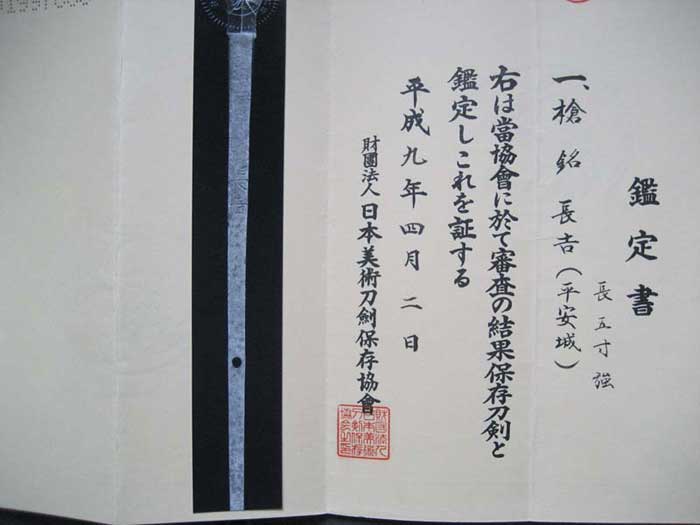 鑑定書
一、槍 銘 長吉(平安城)
長 五寸 強
右は當協會に於て審査の結果保存刀剣と
鑑定しこれを証する
平成九年四月二日
財團法人日本美術刀劍保存協會